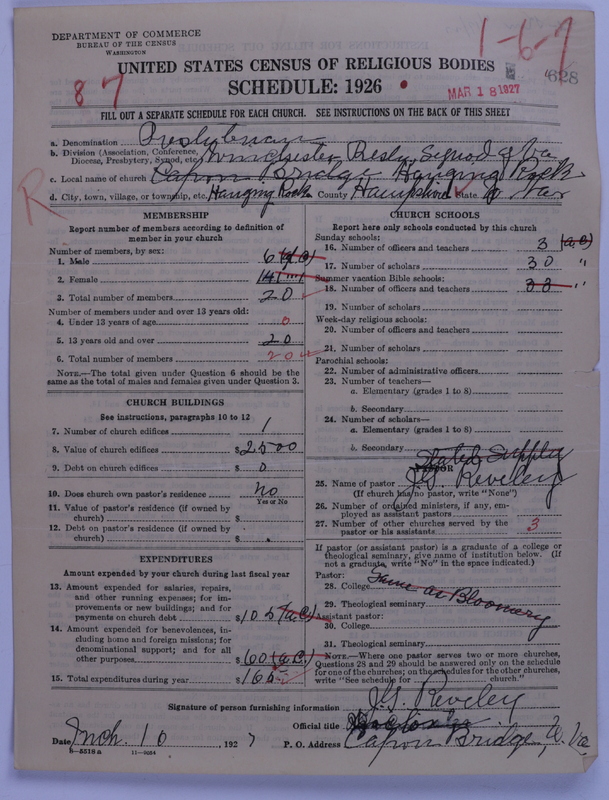 DEPARTMENT OF COMMERCE
BUREAU OF THE CENSUS
WASHINGTON
1-6-7
87
UNITED STATES CENSUS OF RELIGIOUS BODIES
628
SCHEDULE: 1926
MAR 18 1927
FILL OUT A SEPARATE SCHEDULE FOR EACH CHURCH. SEE INSTRUCTIONS ON THE BACK OF THIS SHEET
a. Denomination Presbyterian
b. Division (Association, Conference, Diocese, Presbytery, Synod, etc.) Winchester Presby, Synod of Va
c. Local name of church Capon Bridge Hanging Rock
R
d. City, town, village, or township, etc. Hanging Rock County Hampshire State W Va
MEMBERSHIP
Report number of members according to definition of
member in your church
Number of members, by sex:
1. Male 6 (a.c)
2. Female 14 (")
3. Total number of members 20
Number of members under and over 13 years old:
4. Under 13 years of age 0
5. 13 years old and over 20
6. Total number of members 20
NOTE.—The total given under Question 6 should be
same as the total of males and females given under Question 3.
CHURCH BUILDINGS
See instructions, paragraphs 10 to 12
7. Number of church edifices 1
8. Value of church edifices $2500
9. Debt on church edifices $ 0
10. Does church own pastor's residence No
Yes or No
11. Value of pastor's residence (if owned by
church) $
12. Debt on pastor's residence (if owned by
church) $
EXPENDITURES
Amount expended by your church during last fiscal year
13. Amount expended for salaries, repairs,
and other running expenses; for im-
provements or new buildings; and for
payments on church debt $105 (a.c.)
14. Amount expended for benevolences, in-
cluding home and foreign missions; for
denominational support; and for all
other purposes $60 (a.c.)
15. Total expenditures during year $165
CHURCH SCHOOLS
Report here only schools conducted by this church
Sunday schools:
16. Number of officers and teachers 3 (a.c)
17. Number of scholars 30 "
Summer vacation Bible schools:
18. Number of officers and teachers 33 "
19. Number of scholars
Week-day religious schools:
20. Number of officers and teachers
21. Number of scholars
Parochial schools:
22. Number of administrative officers
23. Number of teachers—
a. Elementary (grades 1 to 8)
b. Secondary
24. Number of scholars—
a. Elementary (grades 1 to 8)
b. Secondary
Stated Supply
PASTOR
25. Name of pastor J.G. Reveley
(If church has no pastor, write "None")
26. Number of ordained ministers, if any, em-
ployed as assistant pastors
27. Number of other churches served by the
pastor or his assistants 3
If pastor (or assistant pastor) is a graduate of a college or
theological seminary, give name of institution below. (If
not a graduate, write "No" in the space indicated.)
Pastor:
28. College Same as Bloomery
29. Theological seminary
Assistant pastor:
30. College
31. Theological seminary
NOTE.—Where one pastor serves two or more churches,
Questions 28 and 29 should be answered only on the schedule
for one of the churches; on the schedules for the other churches,
write "See schedule for church."
Signature of person furnishing information J.G. Reveley
Official title
Date Mch. 10, 1927 P. O. Address Capon Bridge, W. Va
8-5518 a 11-9084